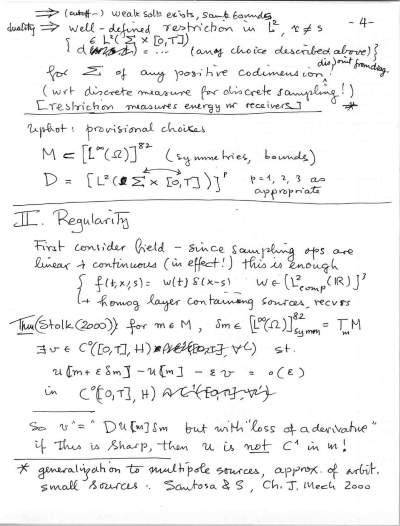 ⇒ (cutoff →) weak soltn exists, same bounds - 4 -
duality ⇒ well-defined restriction in L², r ≠ s
∈ L²(Σ × [0,T])
{ = ... (any choice described above)}
disjoint from diag
for Σ of any positive codimension!
(wrt discrete measure for discrete sampling!)
[restriction measures energy nr receivers] *
Uphot: provisional choices
M ⊂ [L^∞(Ω)]^82 (symmetries, bounds)
D = [L²(Σ × [0,T])]^p p = 1, 2, 3 as
appropriate
II. Regularity
First consider field - since sampling ops are
linear + continuous (in effect!) this is enough
{ f(t,x;s) = w(t) δ(x-s) w ∈ [L²_comp(ℝ)]^3
+ homog layer containing sources, recvrs
Thm (Stolk (2000)) for m ∈ M, δm ∈ [L^∞(Ω)]^82_symm = T_m M
∃ v ∈ C⁰([0,T], H) st.
u[m + ε δm] - u[m] - ε v = o(ε)
in C⁰([0,T], H)
So v "=" D u[m] δm but with "loss of a derivative"
if this is sharp, then u is not C¹ in m!
* generalization to multipole sources, approx. of arbit.
small sources: Santosa & S, Ch. J. Mech 2000